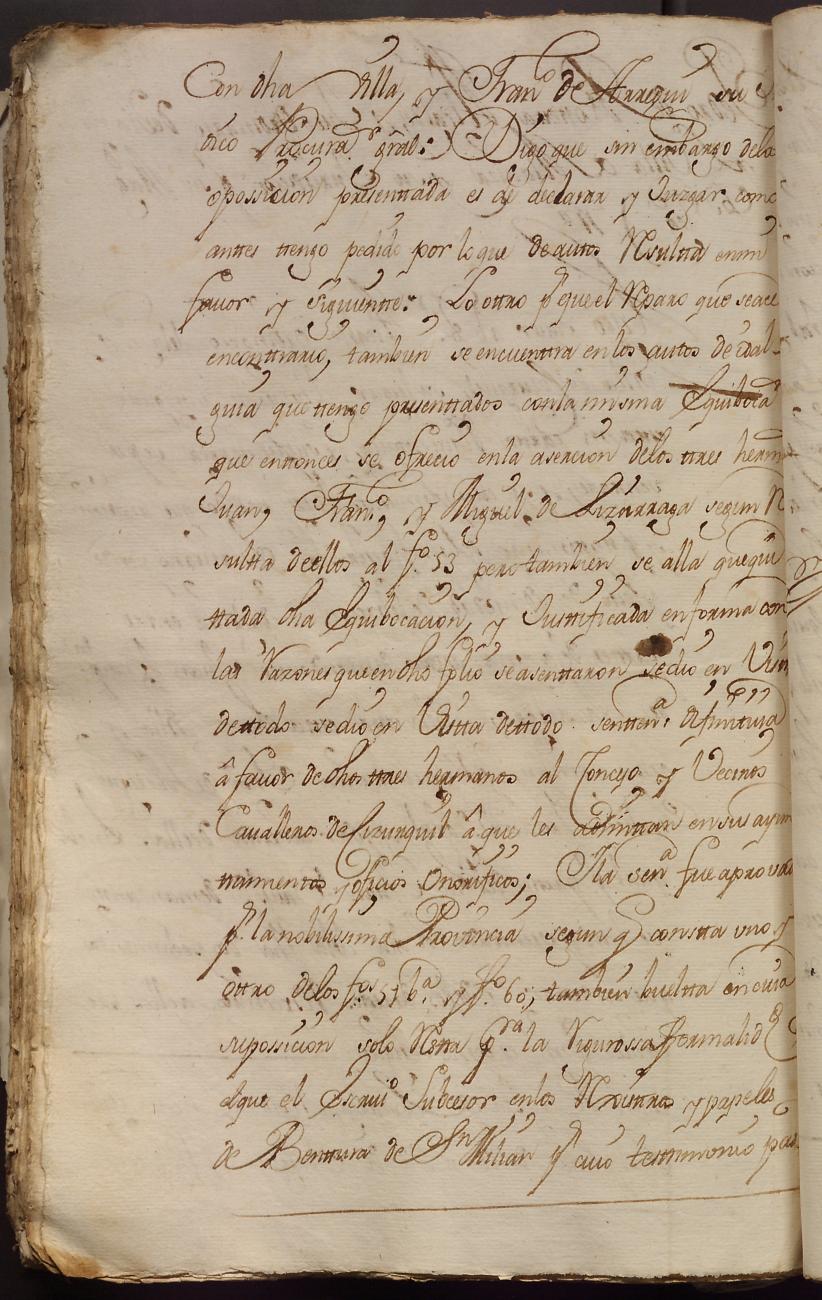 Con dha Villa, y Fran.co de Arregui su S
dico Procura.r gral: Digo que sin embargo de la
oposicion presenttada es de declarar y Juzgar como
anttes ttengo pedido por lo que de auttos Resultta en mi
favor y siguiente: Lo ottro p.r que el Reparo que se ace
en conttrario, tambien se encuenttra en los auttos de idal
guia que ttengo presenttados con la misma Equiboca
que enttonces se ofrecio en la asercion de los ttres herm
Juan, Fran.co, y Miguel de Lizarraga segun R
sultta de ellos al f.o 53 pero tambien se alla que qui
ttada dha Equibocacion, y Justtificada en forma con
las Razones que en dho folio se asenttaron se dio en Vistt
de ttodo se dio en Vistta de ttodo sentten.a difinittiva
â favor de dhos ttres hermanos al Concejo y Vecinos
Cavalleros de Ezcurquil â que les admittan en sus ayun
ttamientos y oficios Onorificos; Y la sen.a fue aprovad
p.r la nobilissima Provincia segun q consta uno y
ottro de los f.os 57 b.ta y f.o 60, tambien buelta en cuia
suposicion solo Resta p.ra la Rigurossa formalid.d
el que el Scriu.o Subcesor en los Rexisttros y papeles
de Benttura de S.n Millan p.r cuio testtimonio pas